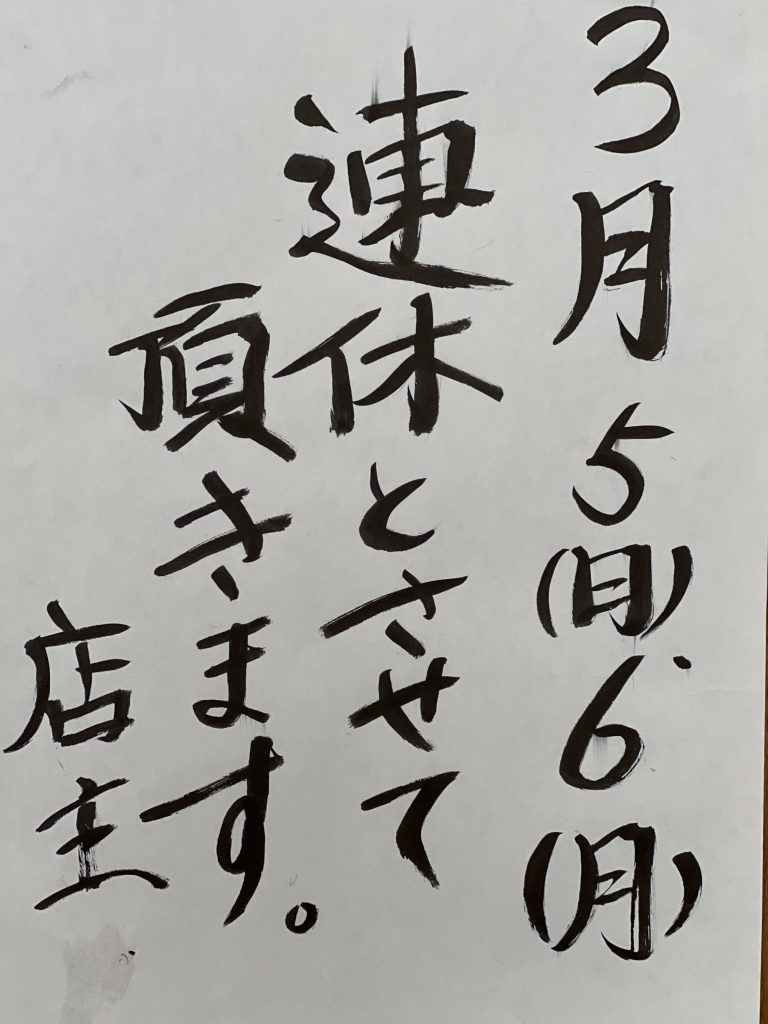 3月5(日)・6(月)
連休とさせて
頂きます。
店主